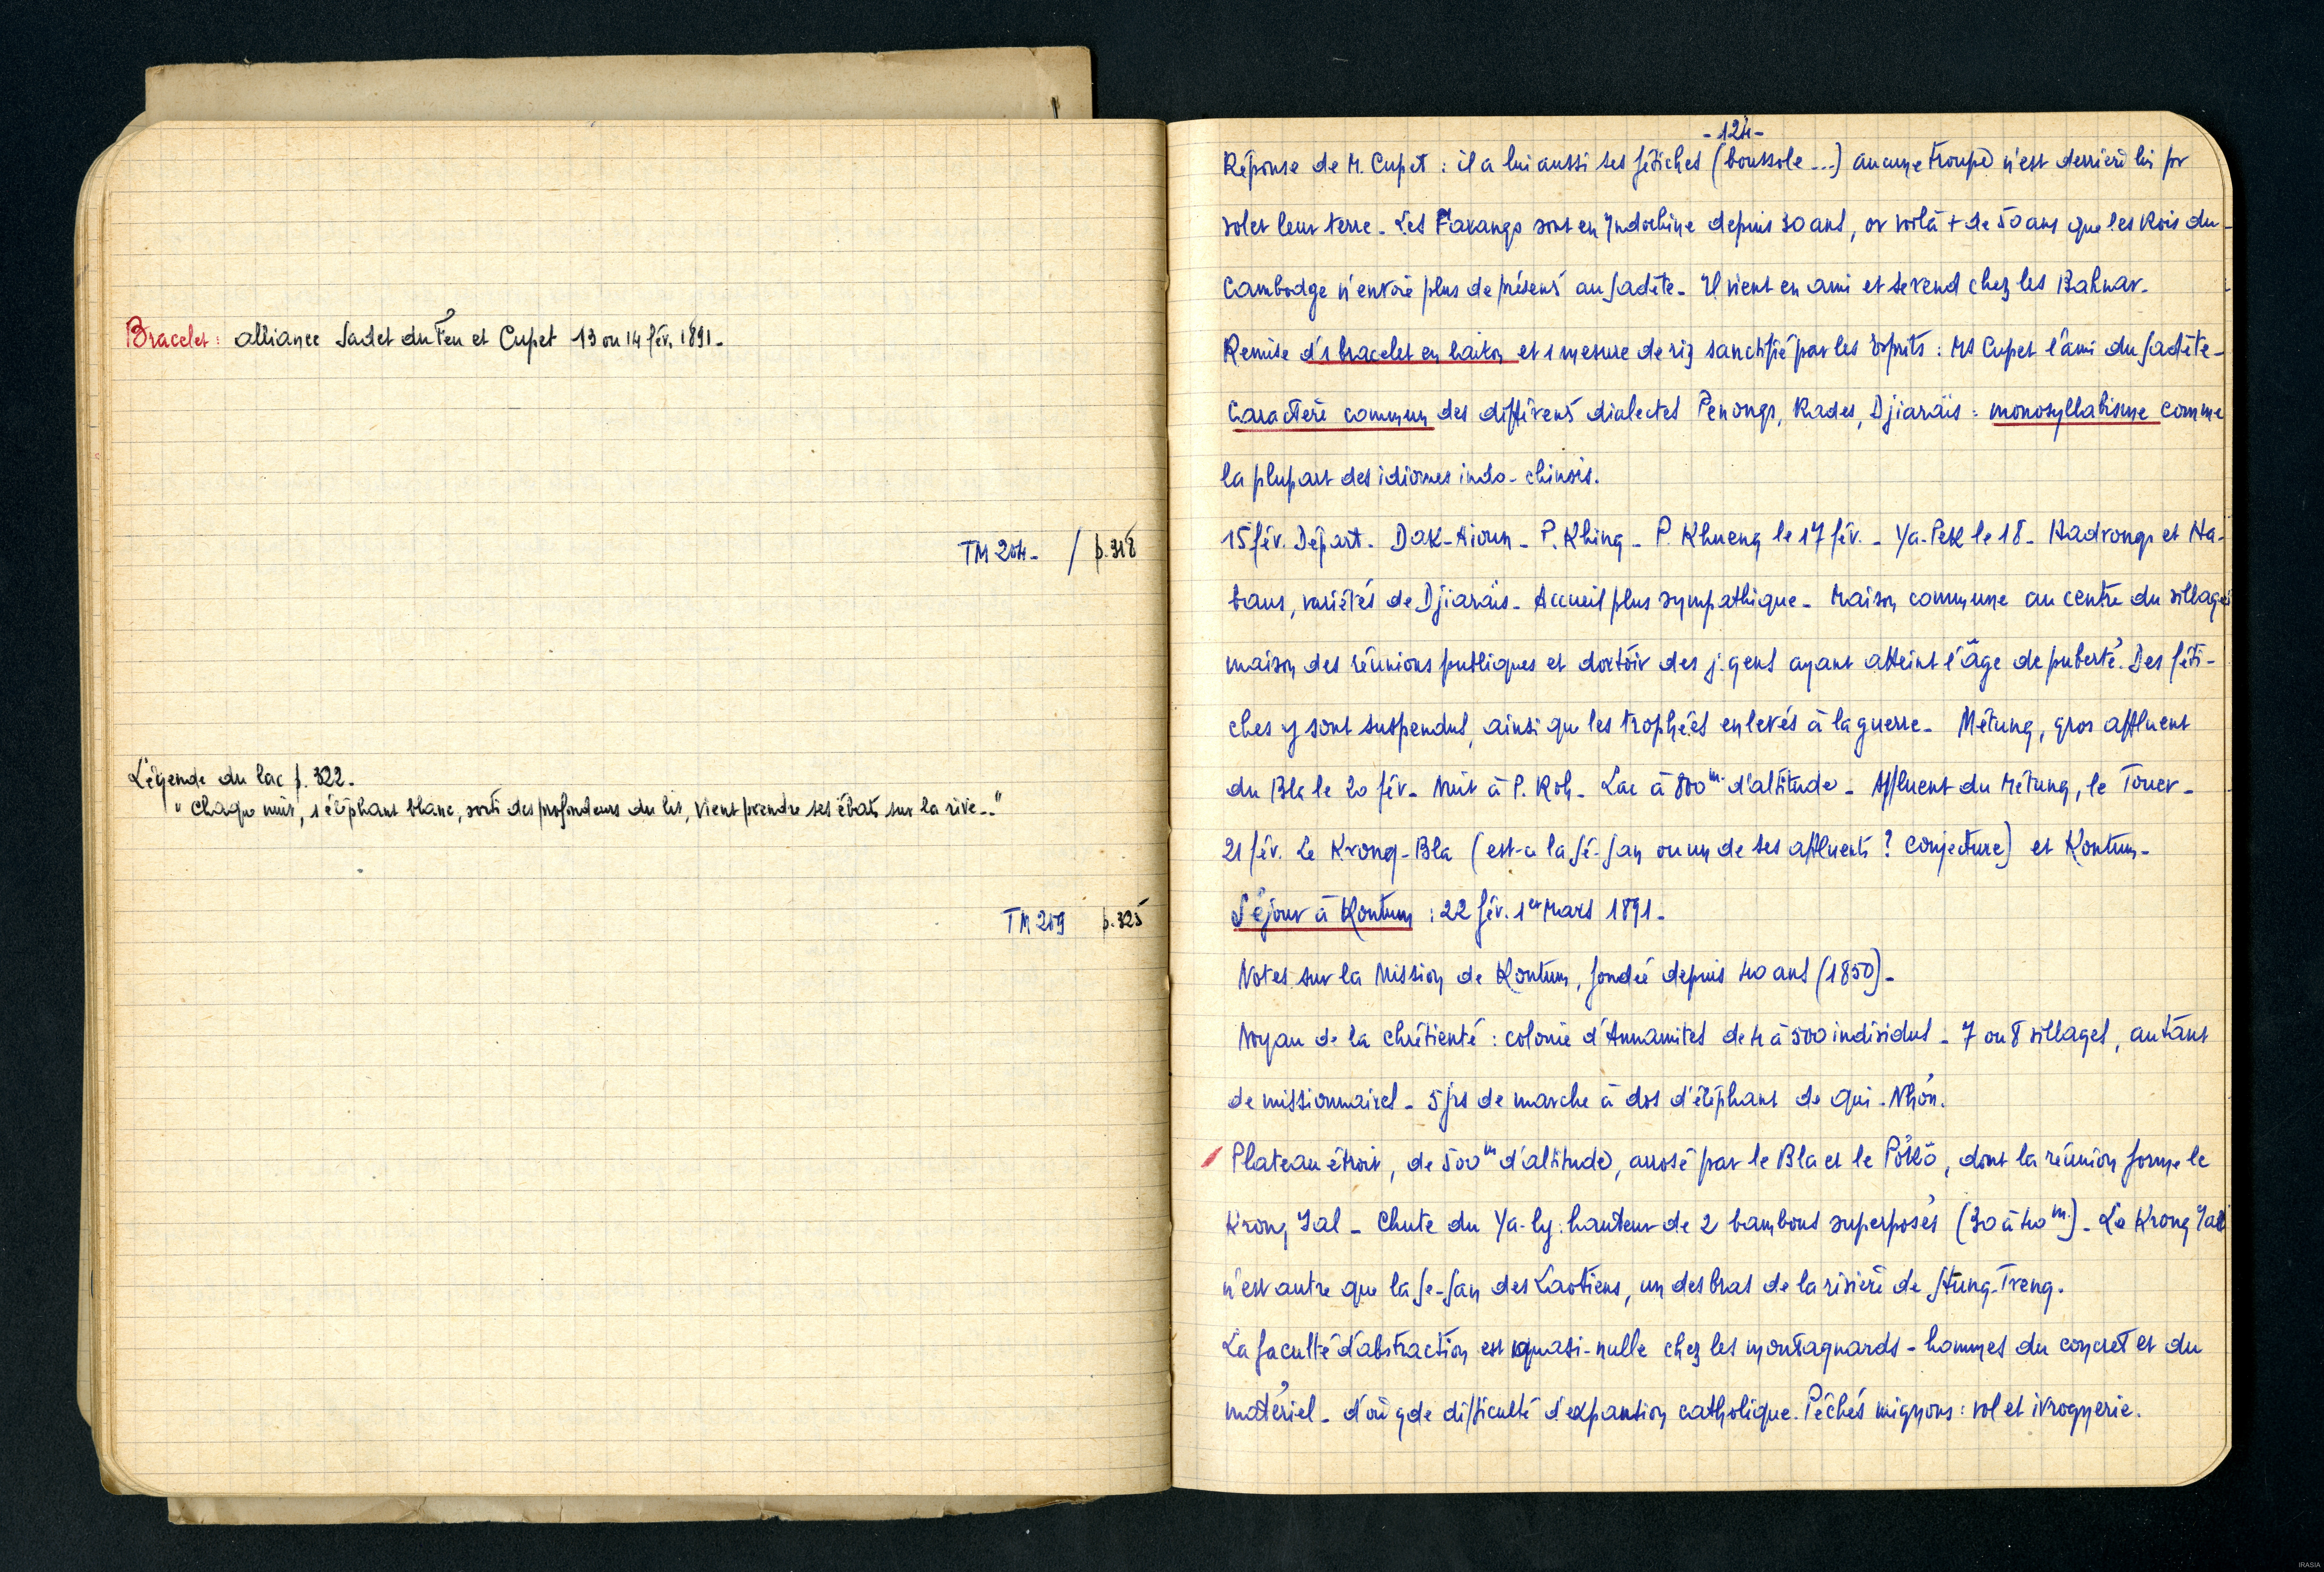 Bracelet : alliance Sadet du Feu et Cupet 13 ou 14 fév. 1891.
TM 204 - / p. 318
Légende du lac p. 322.
" Chaque nuit, 1 éléphant blanc, sorti des profondeurs du lit, vient prendre ses ébats sur la rive..."
TM 209 p. 325
- 124 -
Réponse de M. Cupet : il a lui aussi ses fétiches (boussole ...) aucune troupe n'est derrière lui pr
voler leur terre - Les Farangs sont en Indochine depuis 30 ans, or voilà + de 50 ans que les Rois du
Cambodge n'envoie plus de présents au Sadète - Il vient en ami et se rend chez les Bahnar -
Remise d'1 bracelet en laiton et 1 mesure de riz sanctifié par les Esprits : Mr Cupet l'ami du Sadète -
Caractère commun des différents dialectes Penongs, Rades, Djiaraïs : monosyllabisme comme
la plupart des idiomes indo-chinois.
15 fév. Départ - Dak-Aioun - P. Khing - P. Khueng le 17 fév. - Ya-Pek le 18 - Hadrongs et Ha-
baus, variétés de Djiaraïs - Accueil plus sympathique - Maison commune au centre du village
maison des réunions publiques et dortoir des j. gens ayant atteint l'âge de puberté. Des féti-
ches y sont suspendus, ainsi que les trophées enlevés à la guerre - Métung, gros affluent
du Bla le 20 fév - Nuit à P. Roh - Lac à 800 m. d'altitude - Affluent du Métung, le Touer -
21 fév. Le Krong-Bla (est-ce la Sé-San ou un de ses affluents ? conjecture) et Kontum -
Séjour à Kontum : 22 fév. 1er Mars 1891 -
Notes sur la Mission de Kontum, fondée depuis 40 ans (1850) -
Noyau de la chrétienté : colonie d'Annamites de 4 à 500 individus - 7 ou 8 villages, autant
de missionnaires - 5 jrs de marche à dos d'éléphant de Qui-Nhon.
/ Plateau étroit, de 500 m d'altitude, arrosé par le Bla et le Pôkô, dont la réunion forme le
Krong Jal - Chute du Ya-ly : hauteur de 2 bambous superposés (30 à 40 m.) - Le Krong Jal
n'est autre que la Se-San des Laotiens, un des bras de la rivière de Stung-Treng.
La faculté d'abstraction est quasi-nulle chez les montagnards - hommes du concret et du
matériel - d'où gde difficulté d'expansion catholique. Péchés mignons : vol et ivrognerie.
IRASIA